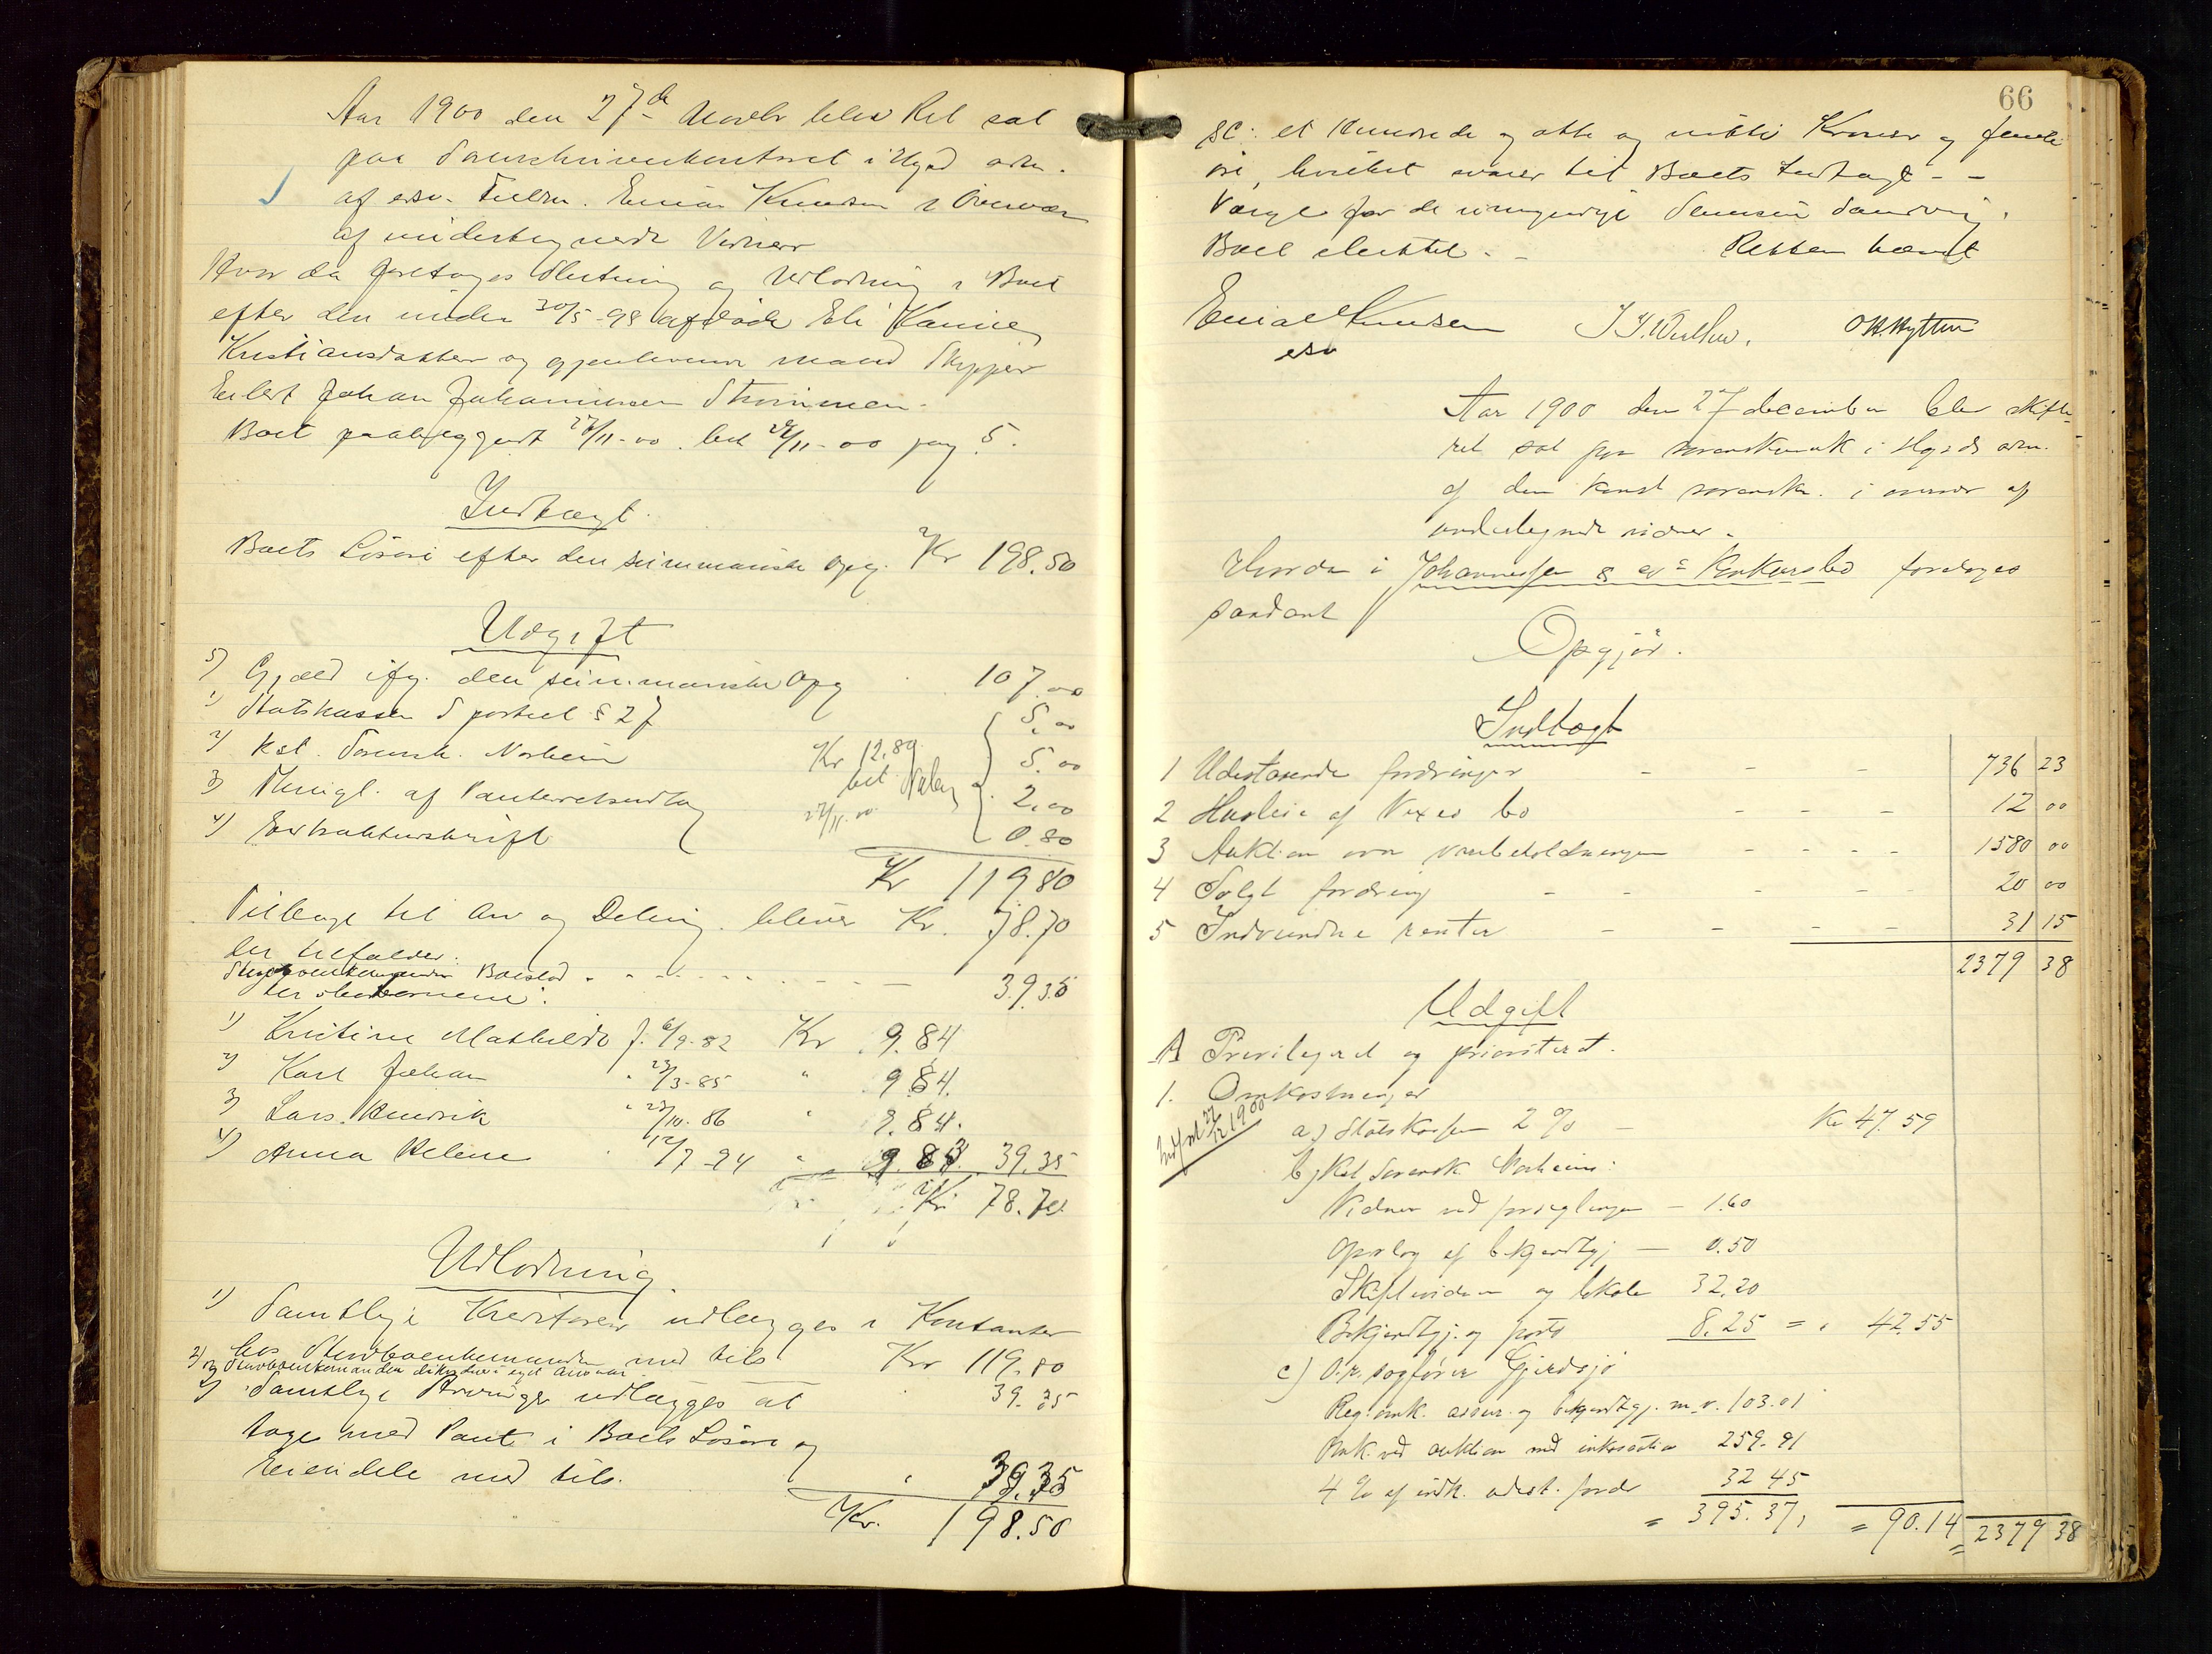 Aar 1900 den 27de Novbr blev Ret sat
paa Sorenskriverkontoret i
af esv. Fuldm. Einar Knudsen i Overvær
af undertegnede Vidner
Hvor da foretoges Slutning og Udlodning i Boet
efter den under 30/5-98 afdøde Eli Karine
Kristiansdatter og gjenlevende mand Skipper
Eilert Johan Johannesen Strømmen.
Boet paabegyndt 27/11-00. bet 27/11-00 pag 5.
Indtægt.
Boets Løsøre efter den summariske Opg. Kr 198.50
Udgift
5) Gjæld ifg. den summariske Opg 107.00
1) Statskassen Sportel § 27 5.00
2) Kst. Sorensk. Norheim Kr 12.80 5.00
3) Thingl. af Panteretsudlæg bet 2.00
4) Extraktudskrift 27/11-00 0.80
Kr 119.80
Tilbage til Arv og Deling bliver Kr. 78.70
der tilfalder:
Boeslod 39.35
1) Kristine Mathilde f. 6/9-82 Kr 9.84
2) Karl Johan " 23/3-85 " 9.84.
3) Lars Hendrik " 23/10-86 " 9.84.
4) Anna Helene " 12/7-94 " 9.83. 39.35
Kr. 78.70
Udlodning.
1) Samtlige Kreditorer udlægges i Kontanter
hos Stervboenkemanden med tils Kr 119.80
2) og Stervboenkemanden
3) Samtlige Arvinger udlægges at 39.35
tage med Pant i Boets Løsøre og
Eiendele med tils. " 39.35
Kr. 198.50
66
sc: et Hundrede og otte og nitti Kroner og femti
øre, hvilket svarer til Boets Indtægt - -
Værge for de umyndige
Boet sluttet. - Retten hævet
Einar Knudsen O.K. Hytten
esv
Aar 1900 den 27 december blev skifte-
ret sat paa sorenskr.ktr i
af den konst sorenskr. i overvær af
undertegnede vidner.
Hvorda i Johannesen & co's Konkursbo foretoges
saadant
Opgjør.
Indtægt
1 Udestaaende fordringer - - - 736 23
2 Husleie af bo - - - 12 00
3 Auktion over varebeholdningen - - - - 1580 00
4 Solgt fordring - - - - - 20 00
5 Indvundne renter - - - - 31 15
2379 38
Udgift
A Privilegeret og prioriteret.
1. Omkostninger
27/12 1900
a) Statskassen 2 % - Kr. 47.59
b) Kst. Sorensk. Norheim:
Vidner ved forseglingen - 1.60
Opslag af bekjendtgj - 0.50
Skiftevidner og lokale 32.20
Bekjendtgj. og porto 8.25 = " 42.55
c) O.r.sagfører Gjerdsjø
Reg. omk. assur. og bekjendtgj. m.v. 103.01
Omk. ved auktion med inkassation 259.91
4 % af indk. udest. fordr 32 45
= 395.37, = 90.14 = 2379 38